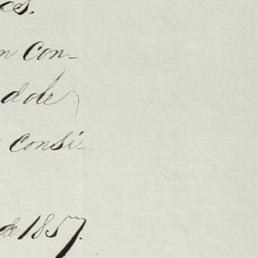 ces.
n con-
dole
consi-
de 1857.